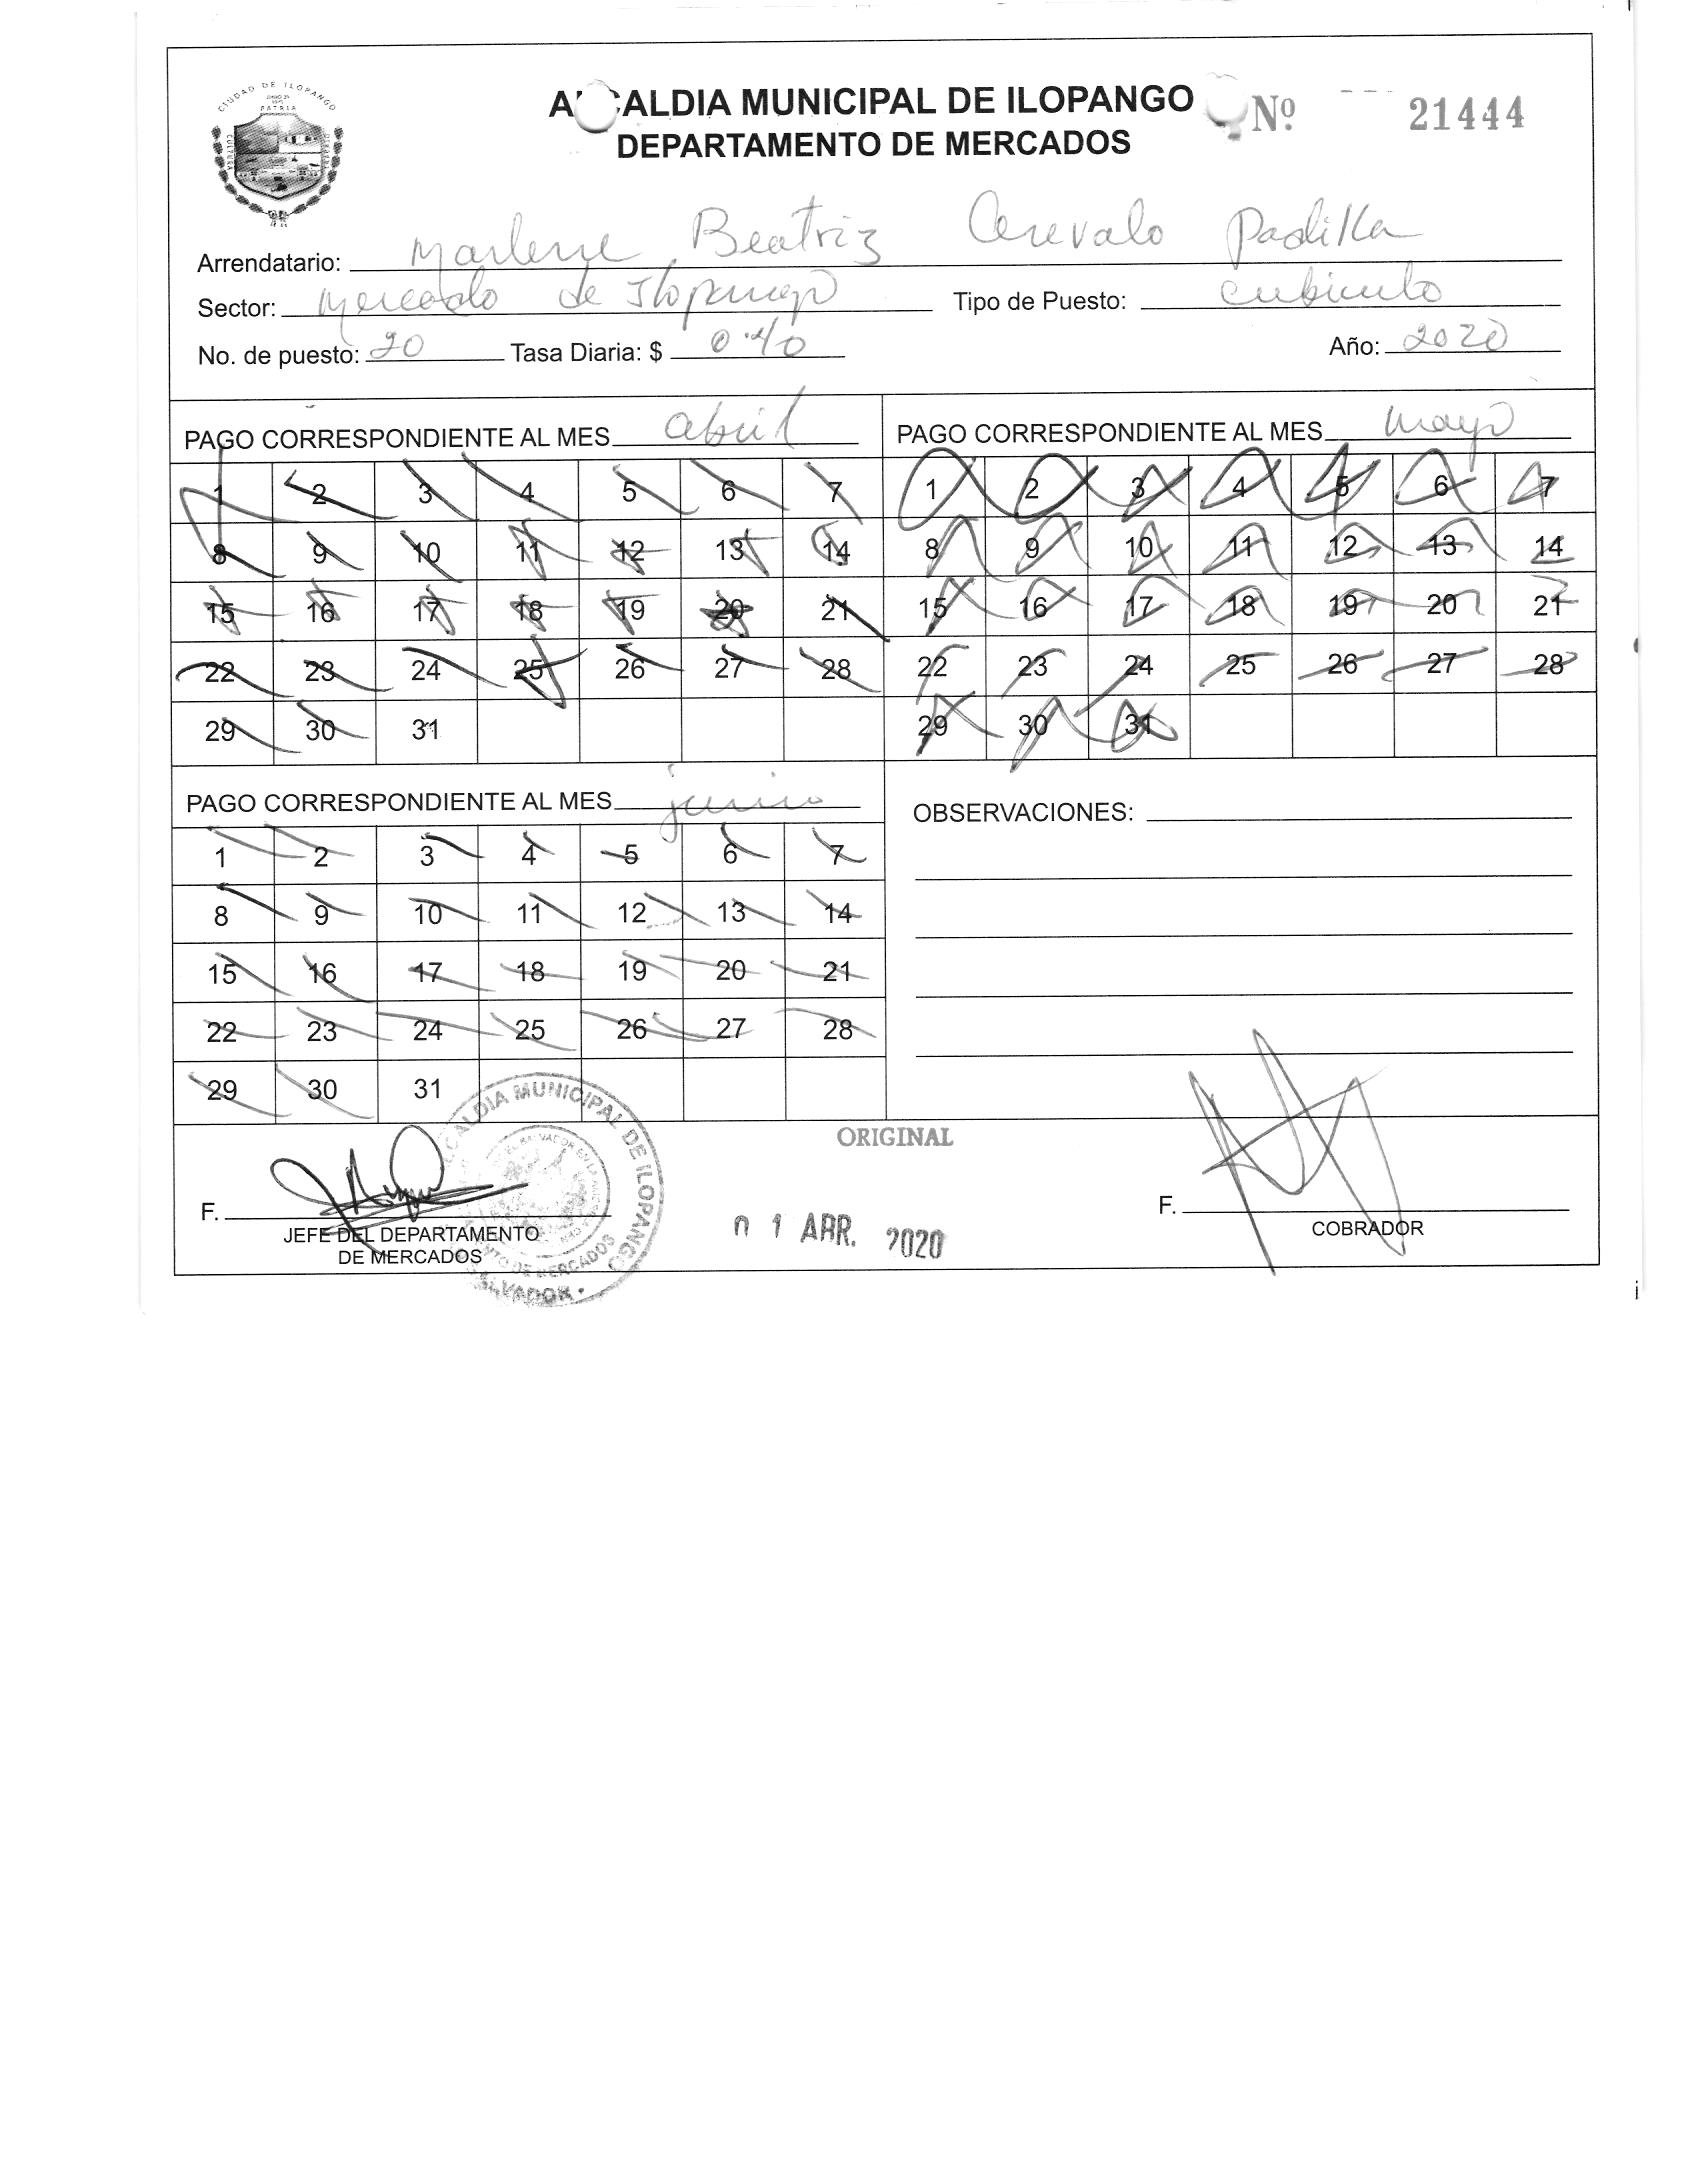 CIUDAD DE ILOPANGO
PATRIA
CULTURA
ALCALDIA MUNICIPAL DE ILOPANGO
Nº 21444
DEPARTAMENTO DE MERCADOS
Arrendatario: Marlene Beatriz Arevalo Padilla
Sector: Mercado de Ilopango Tipo de Puesto: cubiculo
No. de puesto: 20 Tasa Diaria: $ 0.40 Año: 2020
PAGO CORRESPONDIENTE AL MES abril
1 2 3 4 5 6 7
8 9 10 11 12 13 14
15 16 17 18 19 20 21
22 23 24 25 26 27 28
29 30 31
PAGO CORRESPONDIENTE AL MES mayo
1 2 3 4 5 6 7
8 9 10 11 12 13 14
15 16 17 18 19 20 21
22 23 24 25 26 27 28
29 30 31
PAGO CORRESPONDIENTE AL MES junio
1 2 3 4 5 6 7
8 9 10 11 12 13 14
15 16 17 18 19 20 21
22 23 24 25 26 27 28
29 30 31
OBSERVACIONES:
ALCALDIA MUNICIPAL DE ILOPANGO
DE MERCADOS
SALVADOR
ORIGINAL
0 1 ABR. 2020
F.
JEFE DEL DEPARTAMENTO
DE MERCADOS
F.
COBRADOR